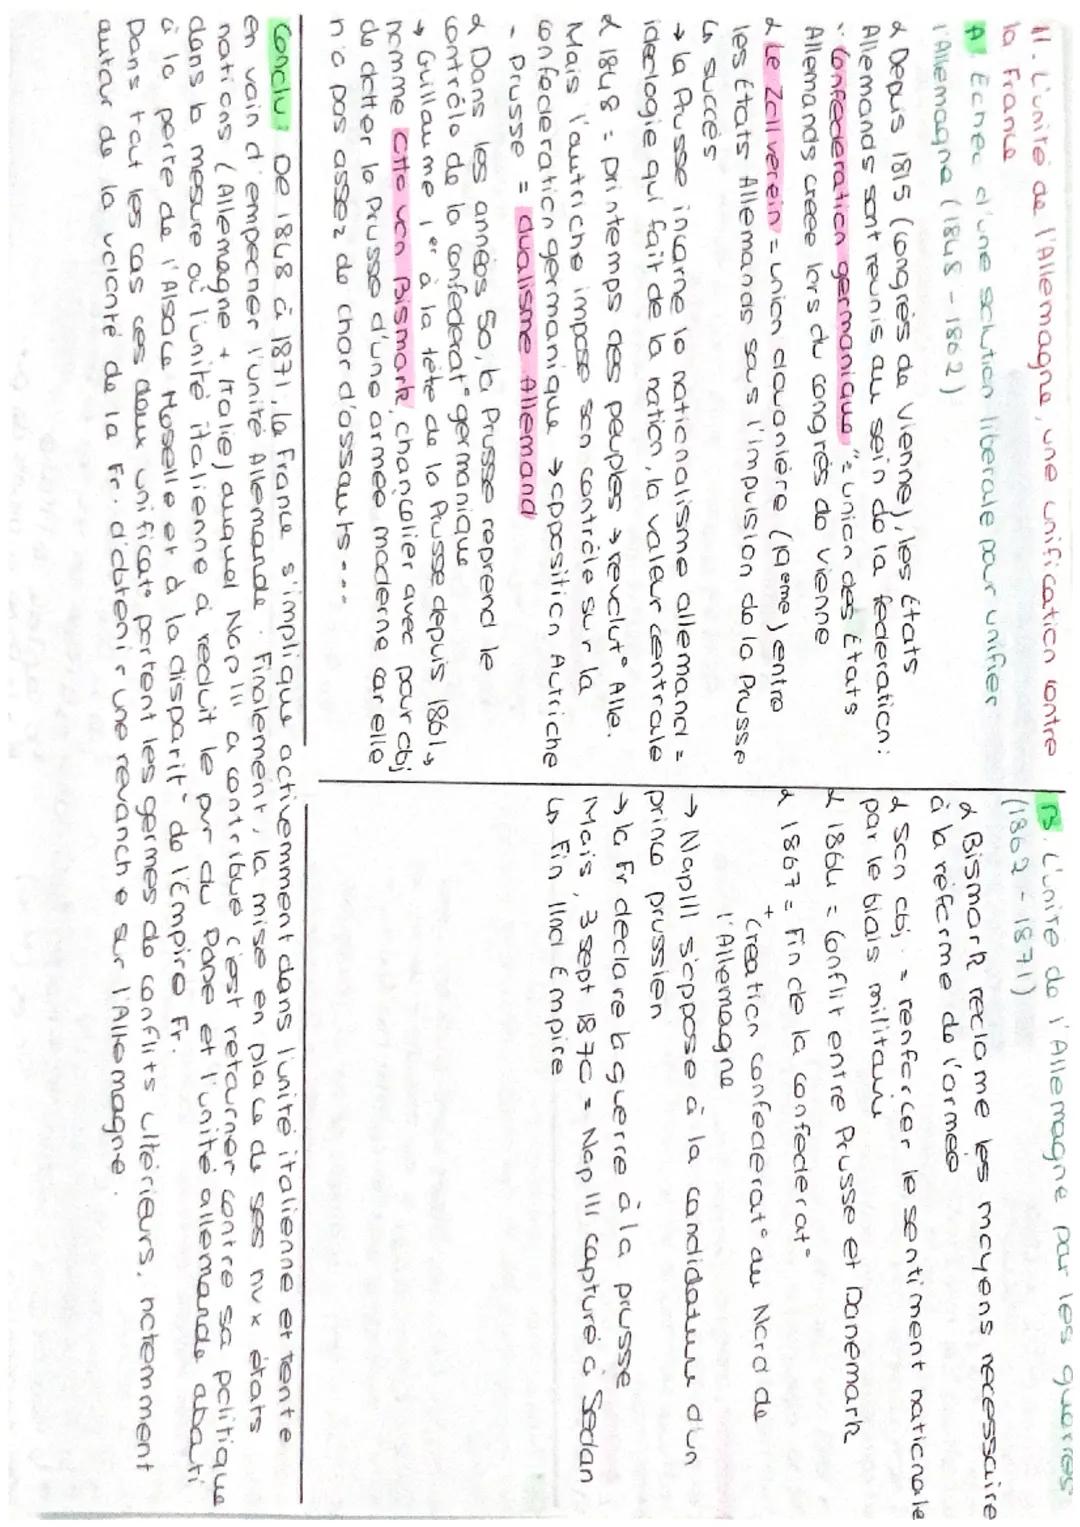 II. L'unité de l'Allemagne, une unification contre
la France
A Echec d'une solution liberale pour unifier
l'Allemagne (1848 - 1862)
α Depuis 1815 (congrès de Vienne), les états
Allemands sont reunis au sein de la federation :
"Confederation germanique" = union des États
Allemands créée lors du congrès de vienne
α Le Zollverein = union douanière (19eme) entre
les États Allemands sous l'impulsion de la Prusse
↳ succès
→ la Prusse incarne le nationalisme allemand =
idéologie qui fait de la nation, la valeur centrale
α 1848 = printemps des peuples → revolut° Alle.
Mais l'autriche impose son contrôle sur la
confederation germanique → opposition Autriche
- Prusse = dualisme Allemand
α Dans les années 50, la Prusse reprend le
contrôle de la confederat° germanique
→ Guillaume 1er à la tête de la Prusse depuis 1861 ↳
nomme Otto von Bismark, chancelier avec pour obj
de doter la Prusse d'une armée moderne car elle
n'a pas assez de char d'assauts...
B. L'unité de l'Allemagne par les guerres
(1862 - 1871)
α Bismark reclame les moyens necessaire
à la réforme de l'armée
α Son obj. = renforcer le sentiment nationale
par le biais militaire
α 1864 = Conflit entre Prusse et Danemark
α 1867 = Fin de la confederat°
+ Creation confederat° au Nord de
l'Allemagne
→ Nap III s'oppose à la candidature d'un
prince prussien
→ la Fr declare la guerre à la prusse
Mais, 3 sept 1870 = Nap III capturé à Sedan
↳ Fin IInd Empire
Conclu : De 1848 à 1871, la France s'implique activemment dans l'unité italienne et tente
en vain d'empecher l'unité Allemande. Finalement, la mise en place de ses nvx états
nations (Allemagne + Italie) auquel Nap III a contribué c'est retourner contre sa politique
dans la mesure où l'unité italienne à reduit le pvr du Pape et l'unité allemande abouti
à la perte de l'Alsace Moselle et à la disparit° de l'Empire Fr.
Dans tout les cas ces deux unificat° portent les germes de conflits ultérieurs, notemment
autour de la volonté de la Fr. d'obtenir une revanche sur l'Allemagne.